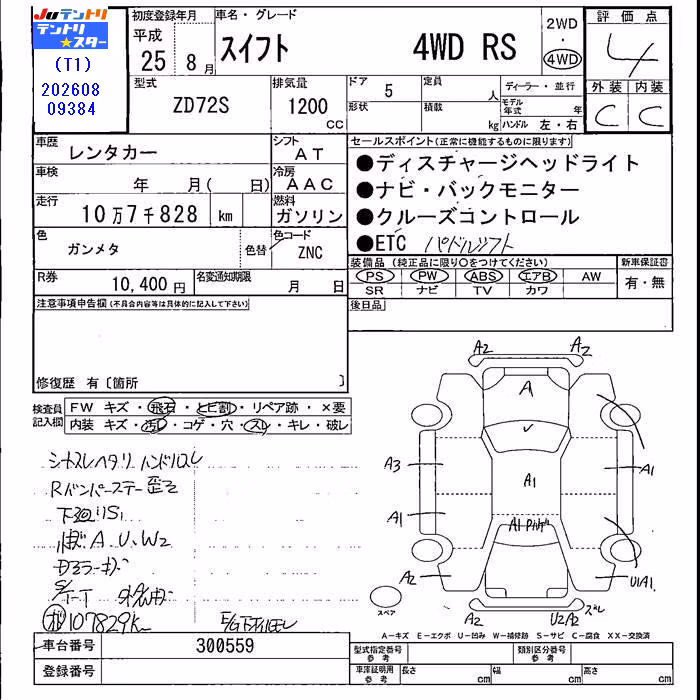 Juテントリ
テントリ★スター
(T1)
202608
09384
初度登録年月
平成
25年 8月
車名・グレード
スイフト 4WD RS
2WD
・
4WD
評価点
4
外装 内装
C C
型式
ZD72S
排気量
1200 CC
ドア 5
形状
定員 人
積載 kg
ディーラー・並行
モデル年式 年
ハンドル 左・右
車歴
レンタカー
シフト
AT
セールスポイント(正常に機能するものに限ります)
●ディスチャージヘッドライト
●ナビ・バックモニター
●クルーズコントロール
●ETC パドルシフト
車検
年 月( 日)
冷房
AAC
走行
10万7千828 km
燃料
ガソリン
色
ガンメタ
色替
色コード
ZNC
装備品(純正品に限り○をつけてください)
PS PW ABS エアB AW
SR ナビ TV カワ
新車保証書
有・無
R券
10,400円
名変通知期限
月 日
後日品
注意事項申告欄(不具合内容等は具体的に記入して下さい)
修復歴 有〔箇所 〕
検査員記入欄
FW キズ・飛石・トビ割・リペア跡・×要
内装 キズ・汚れ・コゲ・穴・スレ・キレ・破レ
シートスレヘタリ ハンドルスレ
Rバンパーステー歪
下廻りS
A、U、W2
107829K
A2 A2
A
A3
A1
A1
A1
A1
A2
U1A1
A2 U2A2 ズレ
スペア
A−キズ E−エクボ U−凹み W−補修跡 S−サビ C−腐食 XX−交換済
車台番号 300559
登録番号
型式指定番号 参考
類別区分番号 参考
車庫証明用 参考
長さ cm 幅 cm 高さ cm